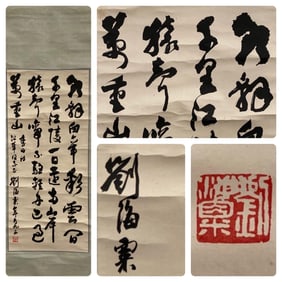 朝辭白帝彩雲間
千里江陵一日還兩岸
猿聲啼不住輕舟已過
萬重山
劉海粟
朝辭
千里江
猿聲
萬重
劉海粟
劉海粟